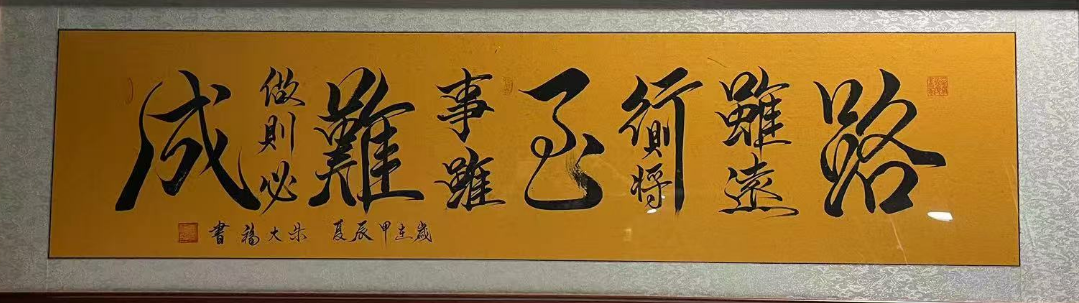 路
雖遠
行則將
至
事雖
難
做則必
成
歲在甲辰夏 大福書